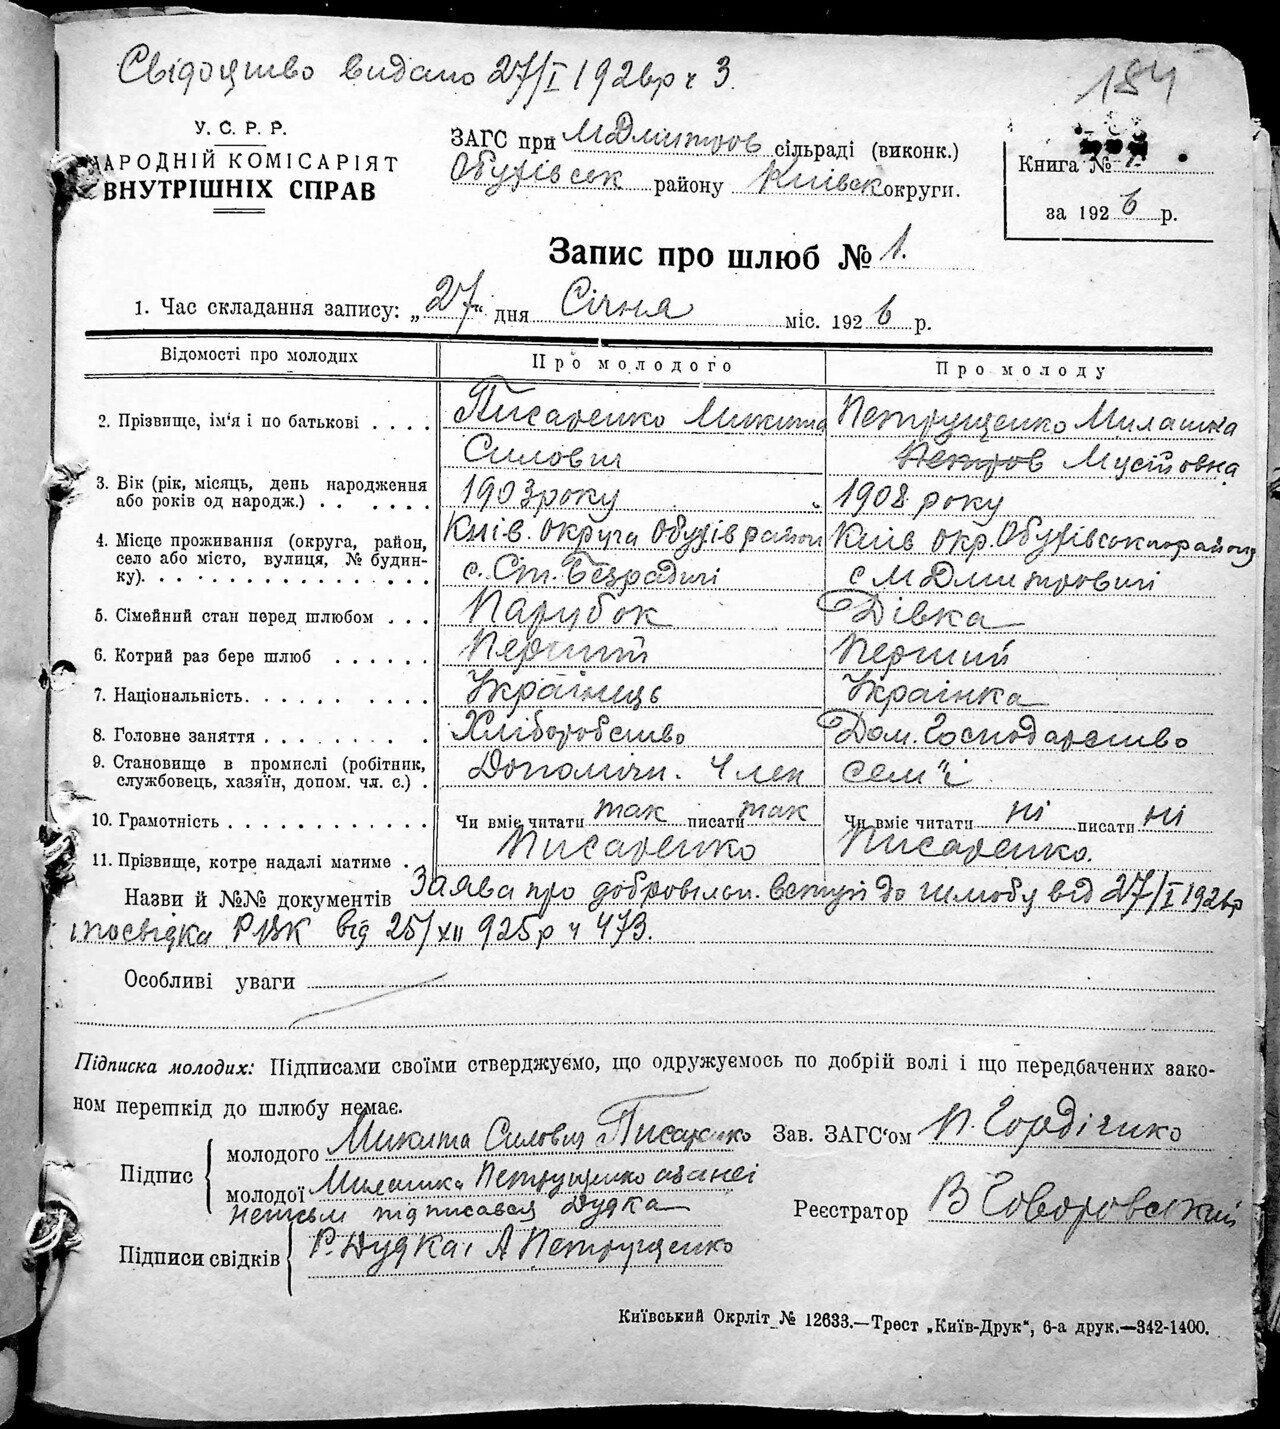 Свідоцтво видано 27/I 1926р ч 3.
184
У. С. Р. Р.
НАРОДНІЙ КОМІСАРІЯТ
ВНУТРІШНІХ СПРАВ
ЗАГС при МДмитров сільраді (виконк.)
Обухівськ району Київськ округи.
Книга №
за 1926 р.
Запис про шлюб № 1.
1. Час складання запису: „27“ дня Січня міс. 1926 р.
Відомості про молодих
Про молодого
Про молоду
2. Прізвище, ім‘я і по батькові
Писаренко Микита
Силович
Петрущенко Милашка
Петров Мусіовна
3. Вік (рік, місяць, день народження
або років од народж.)
1903 року
1908 року
4. Місце проживання (округа, район,
село або місто, вулиця, № будин-
ку)
Київ. округа Обухів район
с. Ст. Безрадичі
Київ окр. Обухівського району
с МДмитровичі
5. Сімейний стан перед шлюбом
Парубок
Дівка
6. Котрий раз бере шлюб
Перший
Перший
7. Національність
Українець
Українка
8. Головне заняття
Хліборобство
Дом. Господарство
9. Становище в промислі (робітник,
службовець, хазяїн, допом. чл. с.)
Допомічн. Член
сем'ї
10. Грамотність
Чи вміє читати так писати так
Чи вміє читати ні писати ні
11. Прізвище, котре надалі матиме
Писаренко
Писаренко.
Назви й №№ документів Заява про добровільн. вступ до шлюбу від 27/I 1926р
і посвідка РВК від 25/XII 925р ч 473.
Особливі уваги
Підписка молодих: Підписами своїми стверджуємо, що одружуємось по добрій волі і що передбачених зако-
ном перешкід до шлюбу немає.
Підпис
молодого Микита Силович Писаренко
молодої Милашка Петрущенко а за неї
неписьм підписався Дудка
Зав. ЗАГС‘ом П. Гордієнко
Реєстратор В Говоровський
Підписи свідків Р. Дудка і А Петрущенко
Київський Окрліт № 12633.—Трест „Київ-Друк“, 6-а друк.—342-1400.